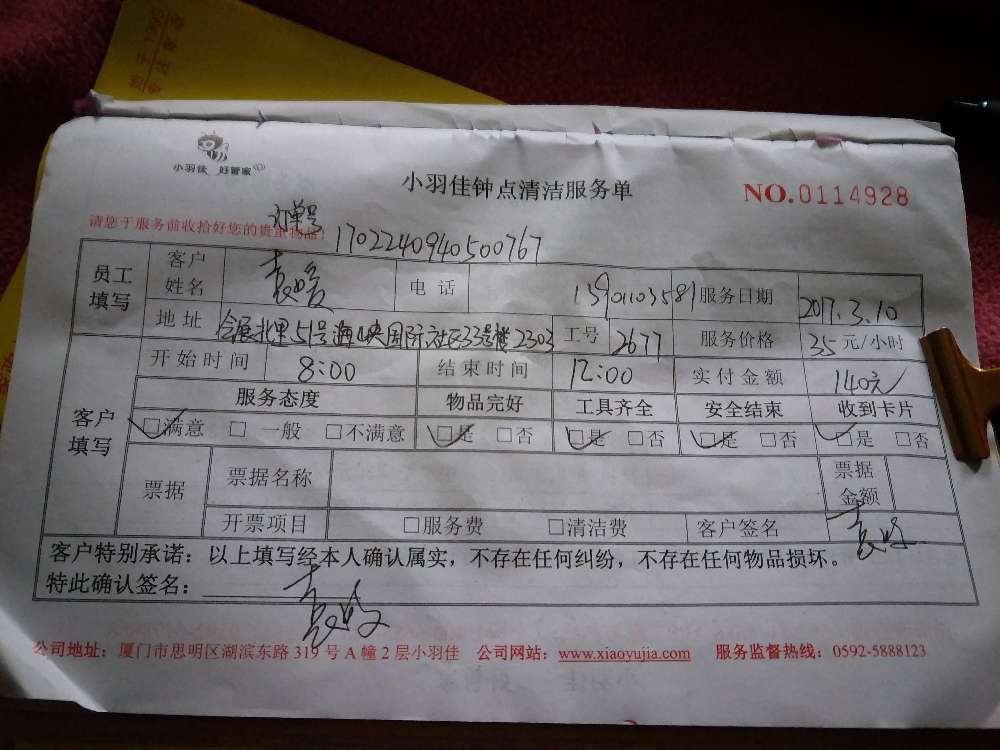 小羽佳 好管家
小羽佳钟点清洁服务单
NO.0114928
请您于服务前收拾好您的贵重物品！
订单号 1702240940500767
员工填写 客户姓名 电话 13901103581 服务日期 2017.3.10
地址 会展北里51号海峡国际社区33号楼2303 工号 2677 服务价格 35元/小时
客户填写 开始时间 8:00 结束时间 12:00 实付金额 140元/
服务态度 物品完好 工具齐全 安全结束 收到卡片
□满意 □一般 □不满意 □是 □否 □是 □否 □是 □否 □是 □否
票据 票据名称 票据金额
开票项目 □服务费 □清洁费 客户签名
客户特别承诺：以上填写经本人确认属实，不存在任何纠纷，不存在任何物品损坏。
特此确认签名：
公司地址：厦门市思明区湖滨东路319号A幢2层小羽佳 公司网站：www.xiaoyujia.com 服务监督热线：0592-5888123